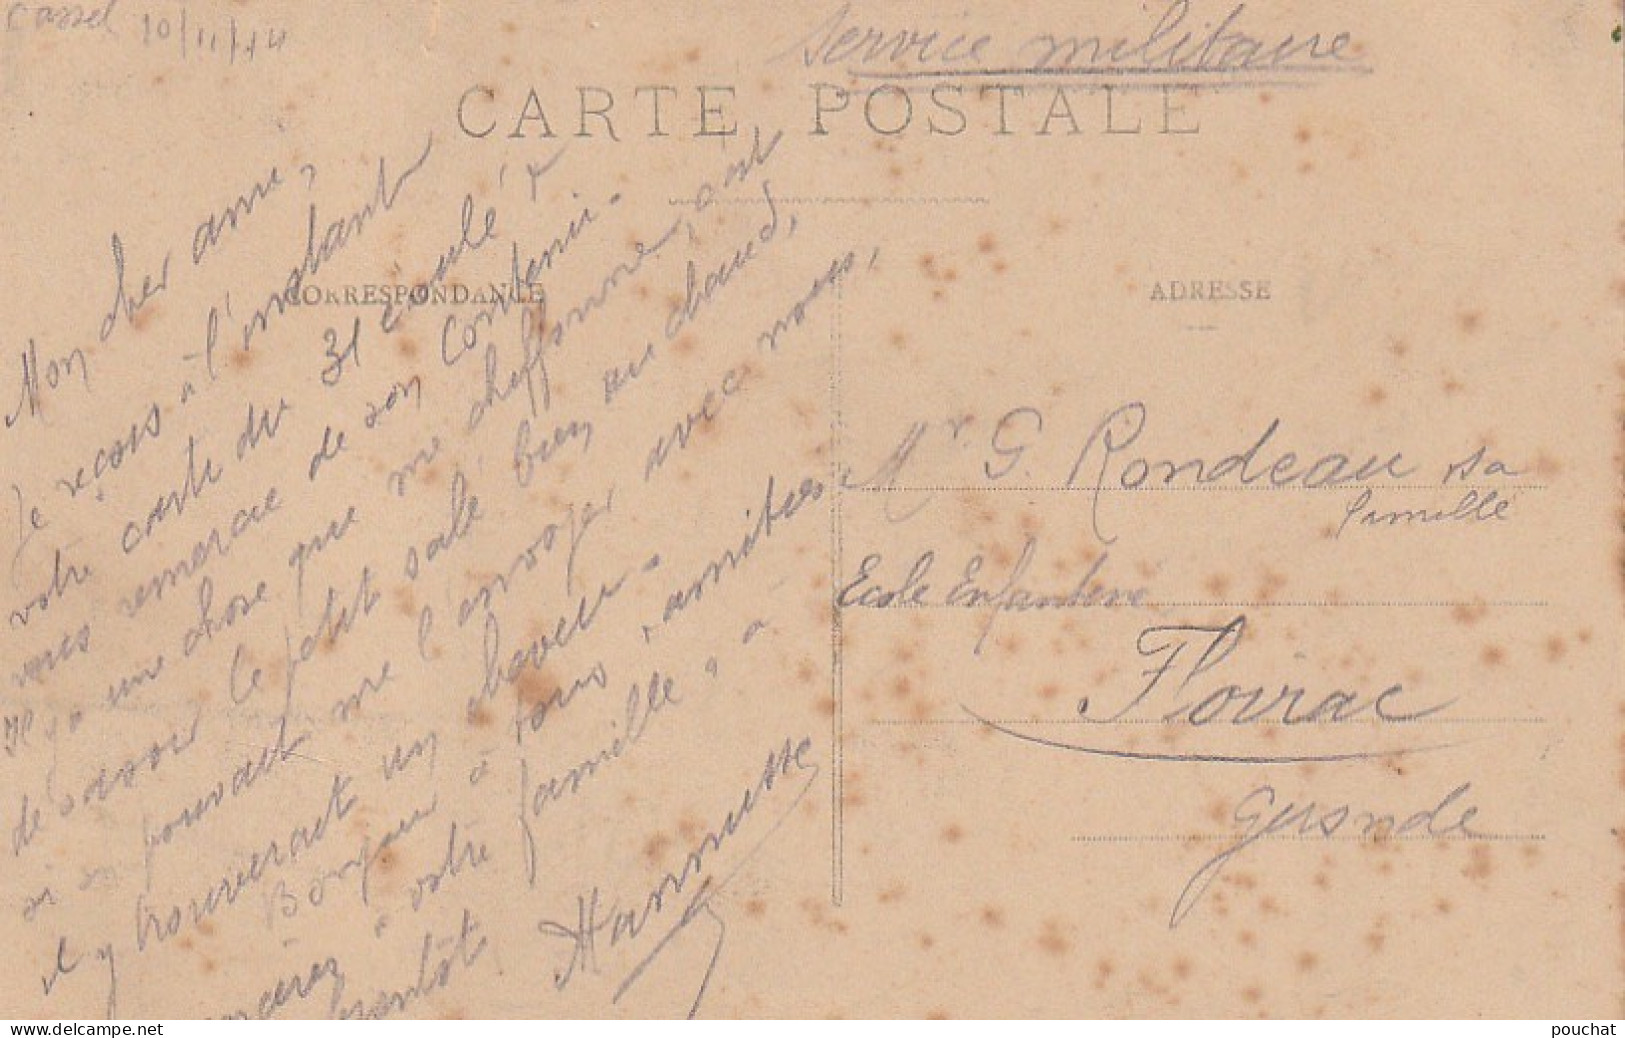 Cassel 10/11/14
Service militaire
CARTE POSTALE
CORRESPONDANCE
ADRESSE
Mon cher ami,
Je reçois à l'instant
votre carte du 31 écoulé &
vous remercie de son contenu.
Il y a une chose que me chiffonne, c'est
de savoir le petit salé bien au chaud,
si on pouvait me l'envoyer avec nous,
il y trouverait un
Bonjour à tous, amitiés
sincères à votre famille, à
bientôt
Mr. G. Rondeau sa
famille
Ecole Enfantine
Floirac
Gironde
pouchat